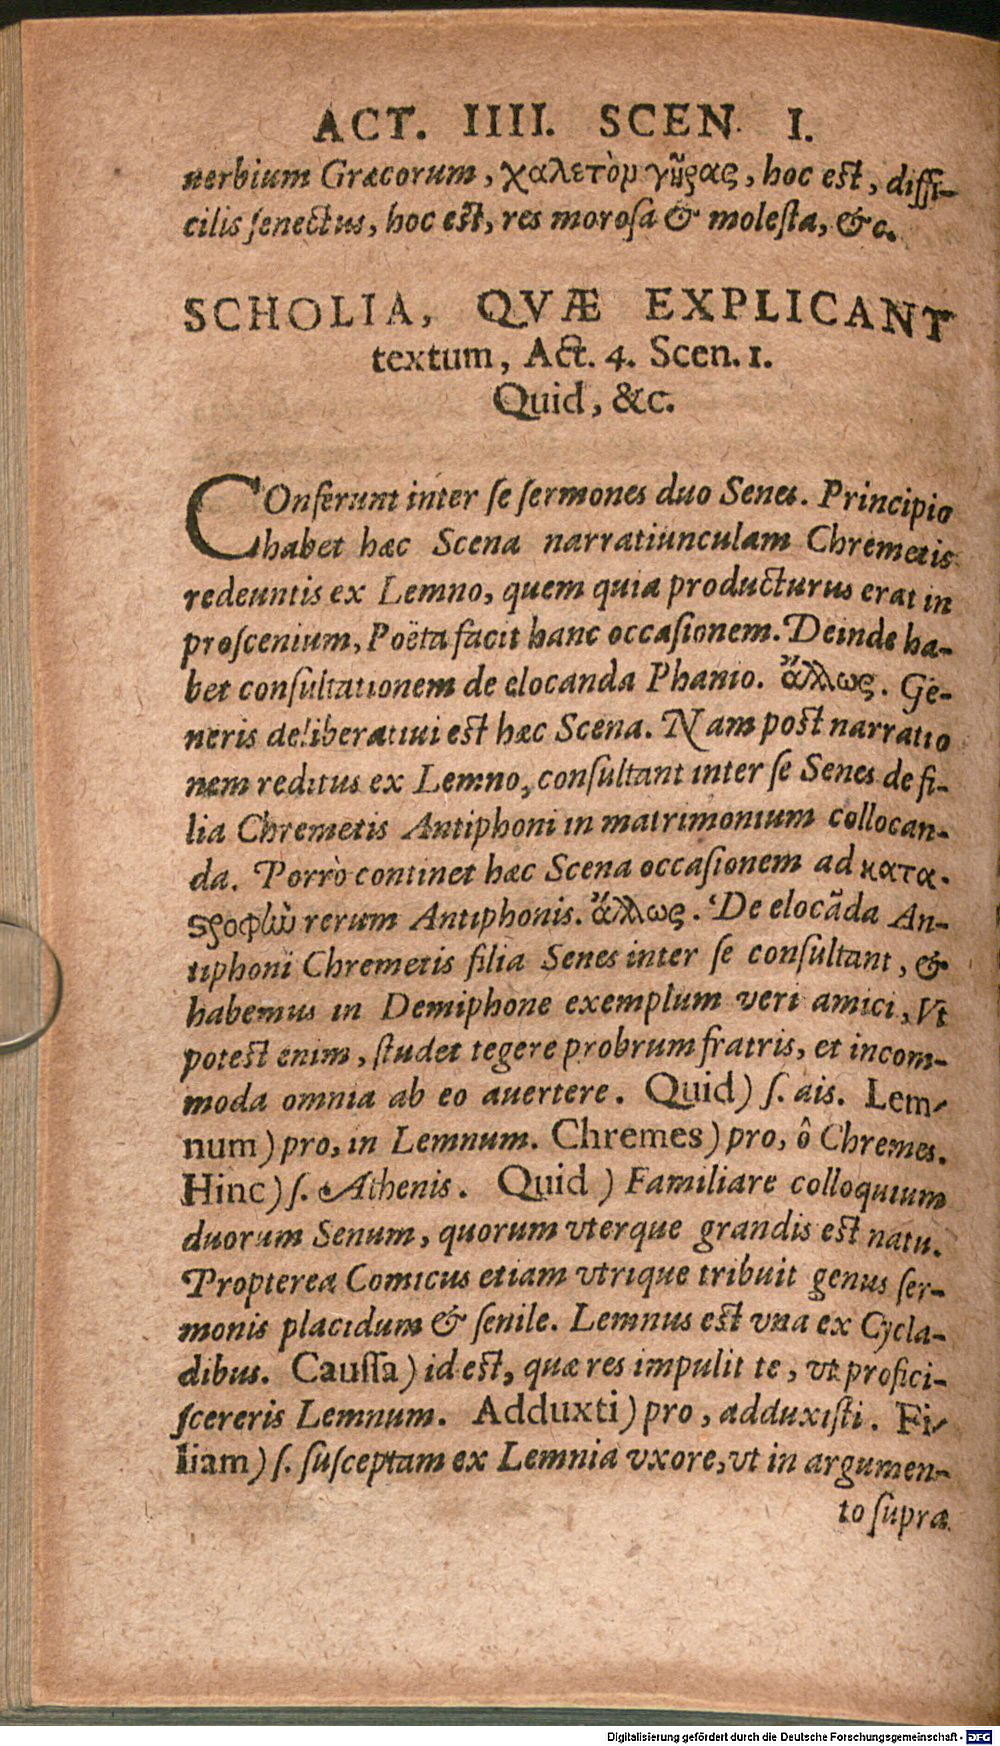 ACT. IIII. SCEN. I.
uerbium Græcorum, χαλετὸμ γῆρας, hoc est, diffi-
cilis ſenectus, hoc est, res moroſa & moleſta, &c.
SCHOLIA, QVÆ EXPLICANT
textum, Act. 4. Scen. 1.
Quid, &c.
COnferunt inter ſe ſermones duo Senes. Principio
habet hæc Scena narratiunculam Chremetis
redeuntis ex Lemno, quem quia producturus erat in
proſcenium, Poëta facit hanc occaſionem. Deinde ha-
bet conſultationem de elocanda Phanio. ἄλλως. Ge-
neris deliberatiui est hæc Scena. Nam post narratio
nem reditus ex Lemno, conſultant inter ſe Senes de fi-
lia Chremetis Antiphoni in matrimonium collocan-
da. Porrò continet hæc Scena occaſionem ad κατα-
ςροφὼ rerum Antiphonis. ἄλλως. De elocãda An-
tiphoni Chremetis filia Senes inter ſe conſultant, &
habemus in Demiphone exemplum veri amici, Vt
potest enim, ſtudet tegere probrum fratris, et incom-
moda omnia ab eo auertere. Quid) ſ. ais. Lem-
num) pro, in Lemnum. Chremes) pro, ô Chremes.
Hinc) ſ. Athenis. Quid) Familiare colloquium
duorum Senum, quorum vterque grandis est natu.
Propterea Comicus etiam vtrique tribuit genus ſer-
monis placidum & ſenile. Lemnus est vna ex Cycla-
dibus. Cauſſa) id est, quæ res impulit te, vt profici-
ſcereris Lemnum. Adduxti) pro, adduxiſti. Fi-
liam) ſ. ſuſceptam ex Lemnia vxore, vt in argumen-
to ſupra
Digitalisierung gefördert durch die Deutsche Forschungsgemeinschaft - DFG